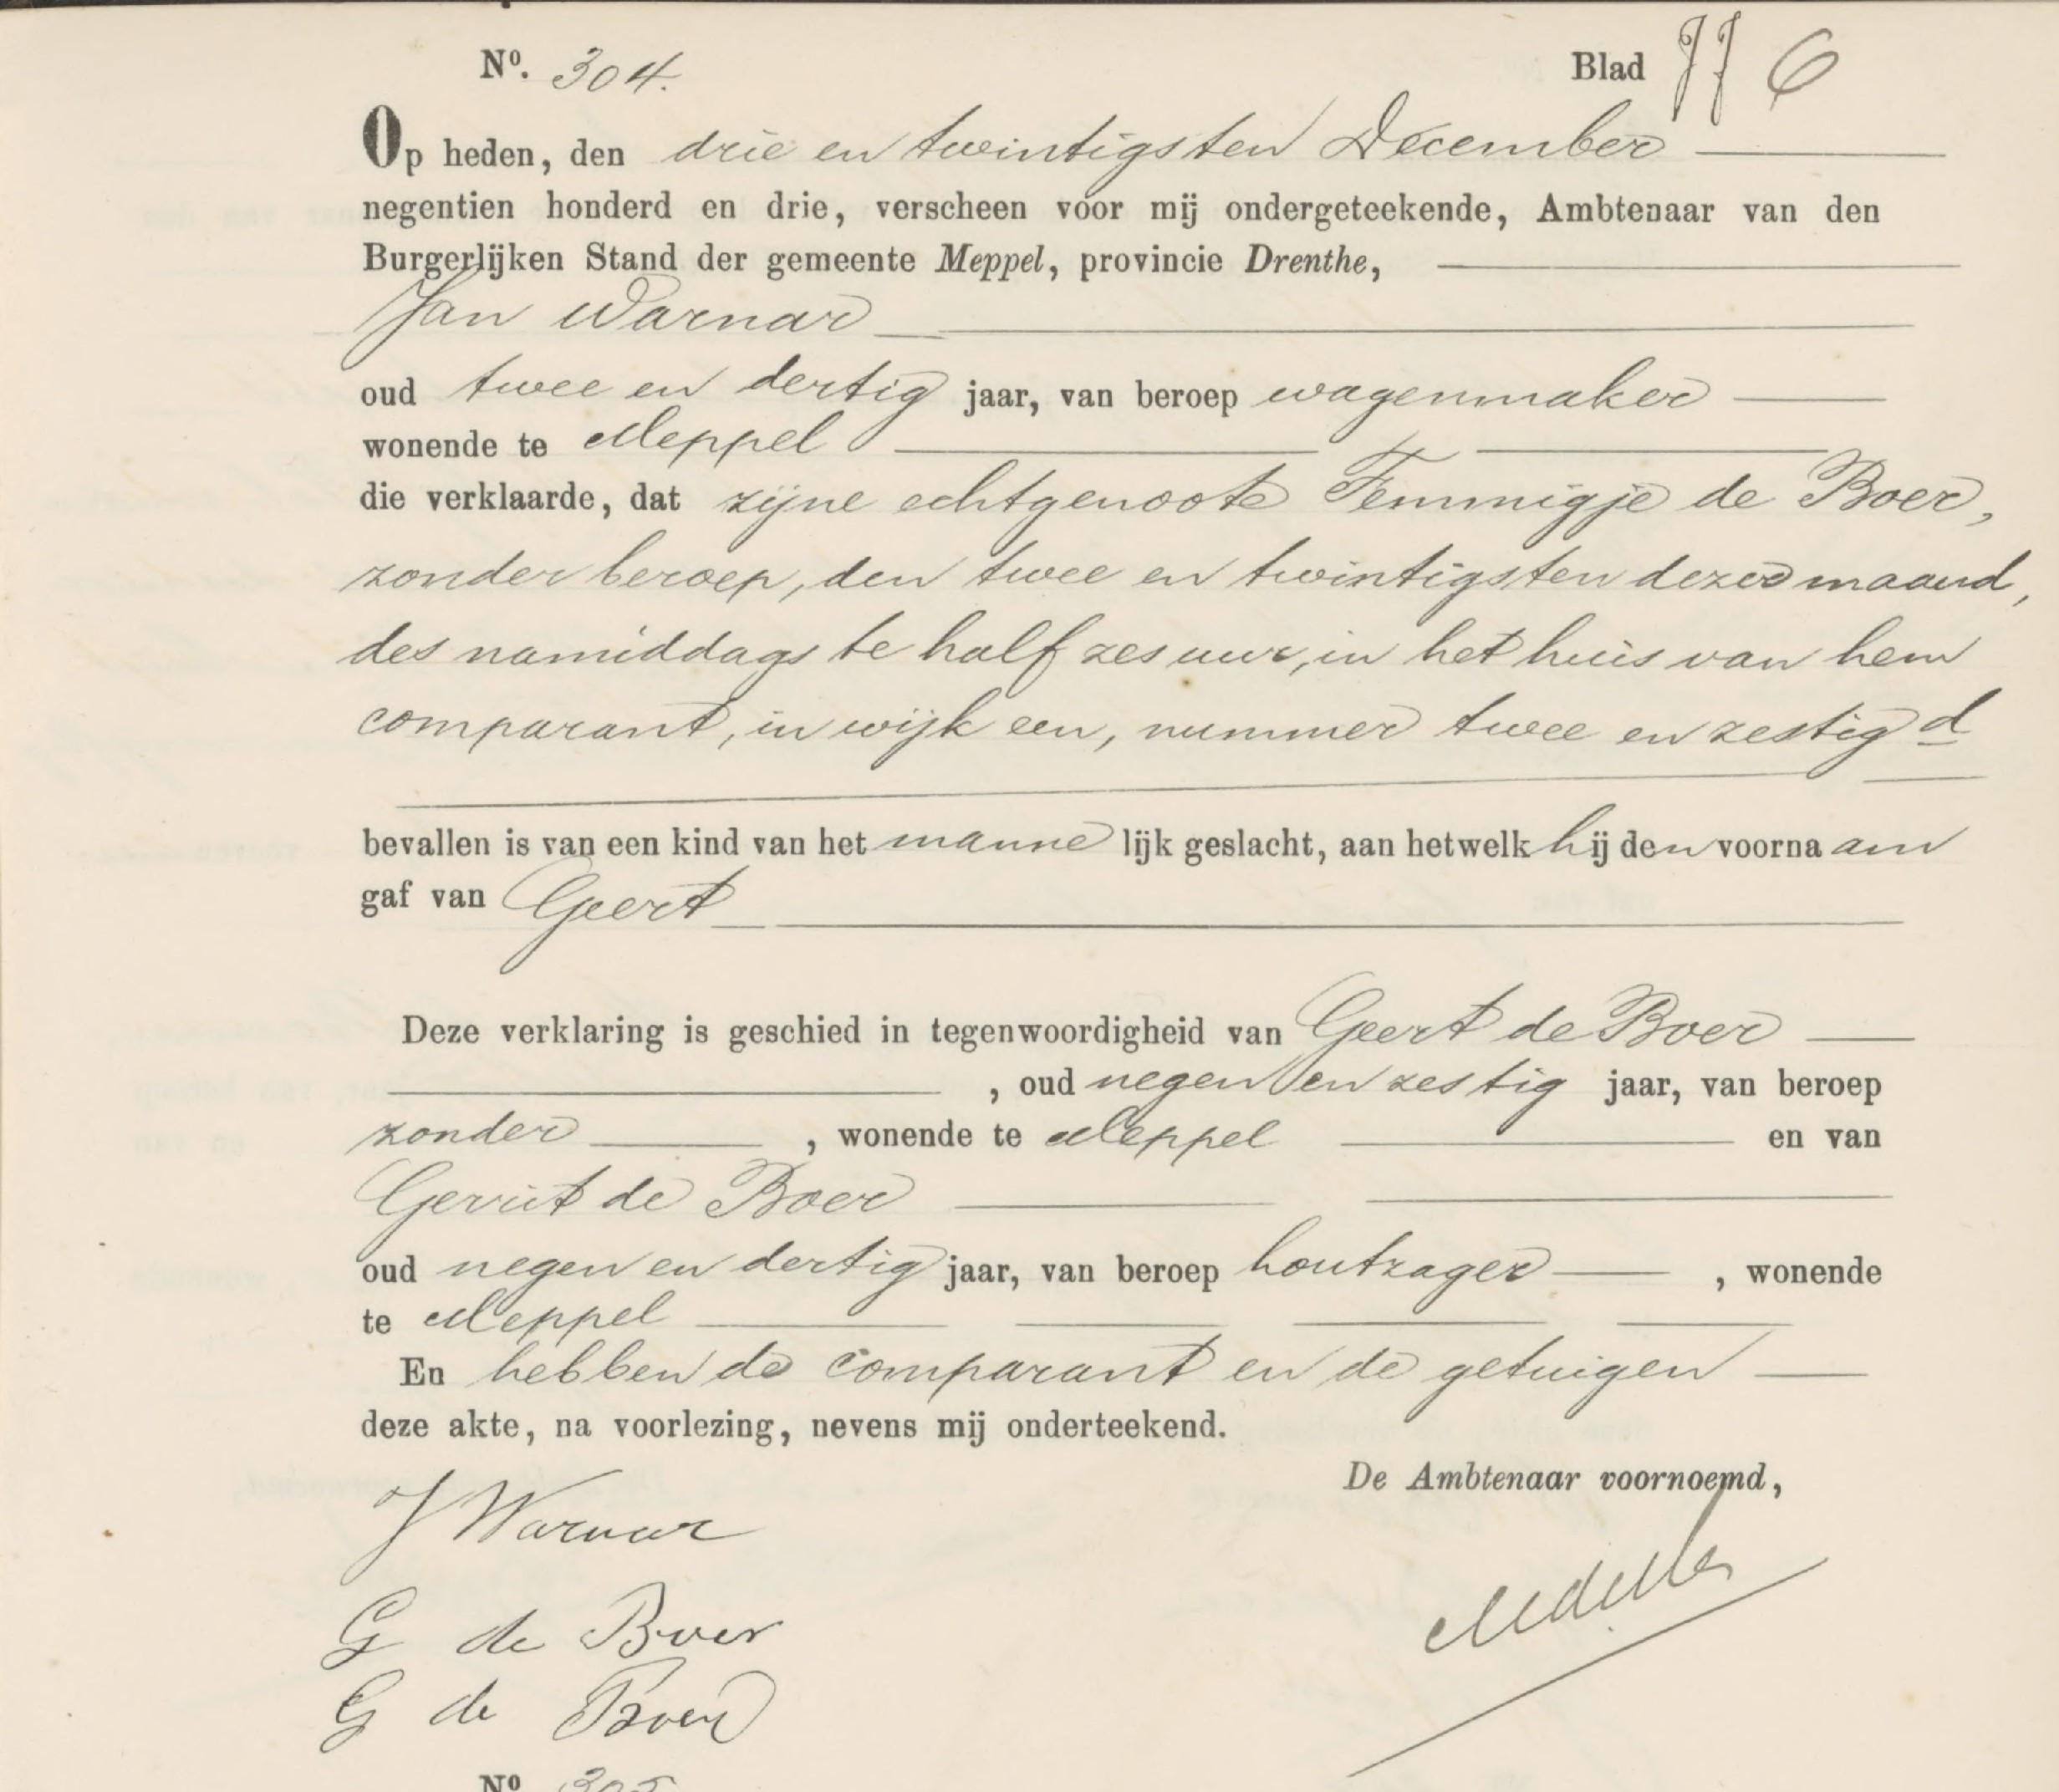 Nº. 304. Blad 77 6
Op heden, den drie en twintigsten December
negentien honderd en drie, verscheen vóór mij ondergeteekende, Ambtenaar van den
Burgerlijken Stand der gemeente Meppel, provincie Drenthe,
Jan Warnar
oud twee en dertig jaar, van beroep wagenmaker
wonende te Meppel
die verklaarde, dat zijne echtgenoote Femmigje de Boer,
zonder beroep, den twee en twintigsten dezer maand,
des namiddags te half zes uur, in het huis van hem
comparant, in wijk een, nummer twee en zestig d
bevallen is van een kind van het mannelijk geslacht, aan hetwelk hij den voornaam
gaf van Geert
Deze verklaring is geschied in tegenwoordigheid van Geert de Boer
, oud negen en zestig jaar, van beroep
zonder , wonende te Meppel en van
Gerrit de Boer
oud negen en dertig jaar, van beroep houtzager , wonende
te Meppel
En hebben de comparant en de getuigen
deze akte, na voorlezing, nevens mij onderteekend.
De Ambtenaar voornoemd,
J Warnar
G de Boer
G de Boer
Nº 305